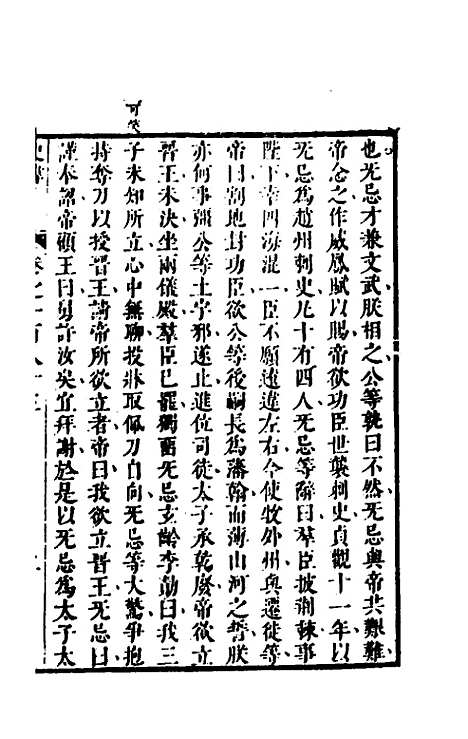 也无忌才兼文武朕相之公等孰曰不然无忌與帝共艱難
帝念之作威鳳賦以賜帝欲功臣世襲刺史貞觀十一年以
无忌為趙州刺史凡十有四人无忌等辭曰羣臣披荆棘事
陛下幸四海混一臣不願遠違左右今使牧外州與遷徙等
帝曰割地封功臣欲公等後嗣長為藩翰而薄山河之誓朕
亦何事彊公等土宇邪遂止進位司徒太子承乾廢帝欲立
晉王未決坐兩儀殿羣臣已罷獨留无忌玄齡李勣曰我三
子未知所立心中無聊投牀取佩刀自向无忌等大驚爭抱
持奪刀以授晉王請帝所欲立者帝曰我欲立晉王无忌曰
謹奉詔帝顧王曰舅許汝矣宜拜謝於是以无忌為太子太
可笑